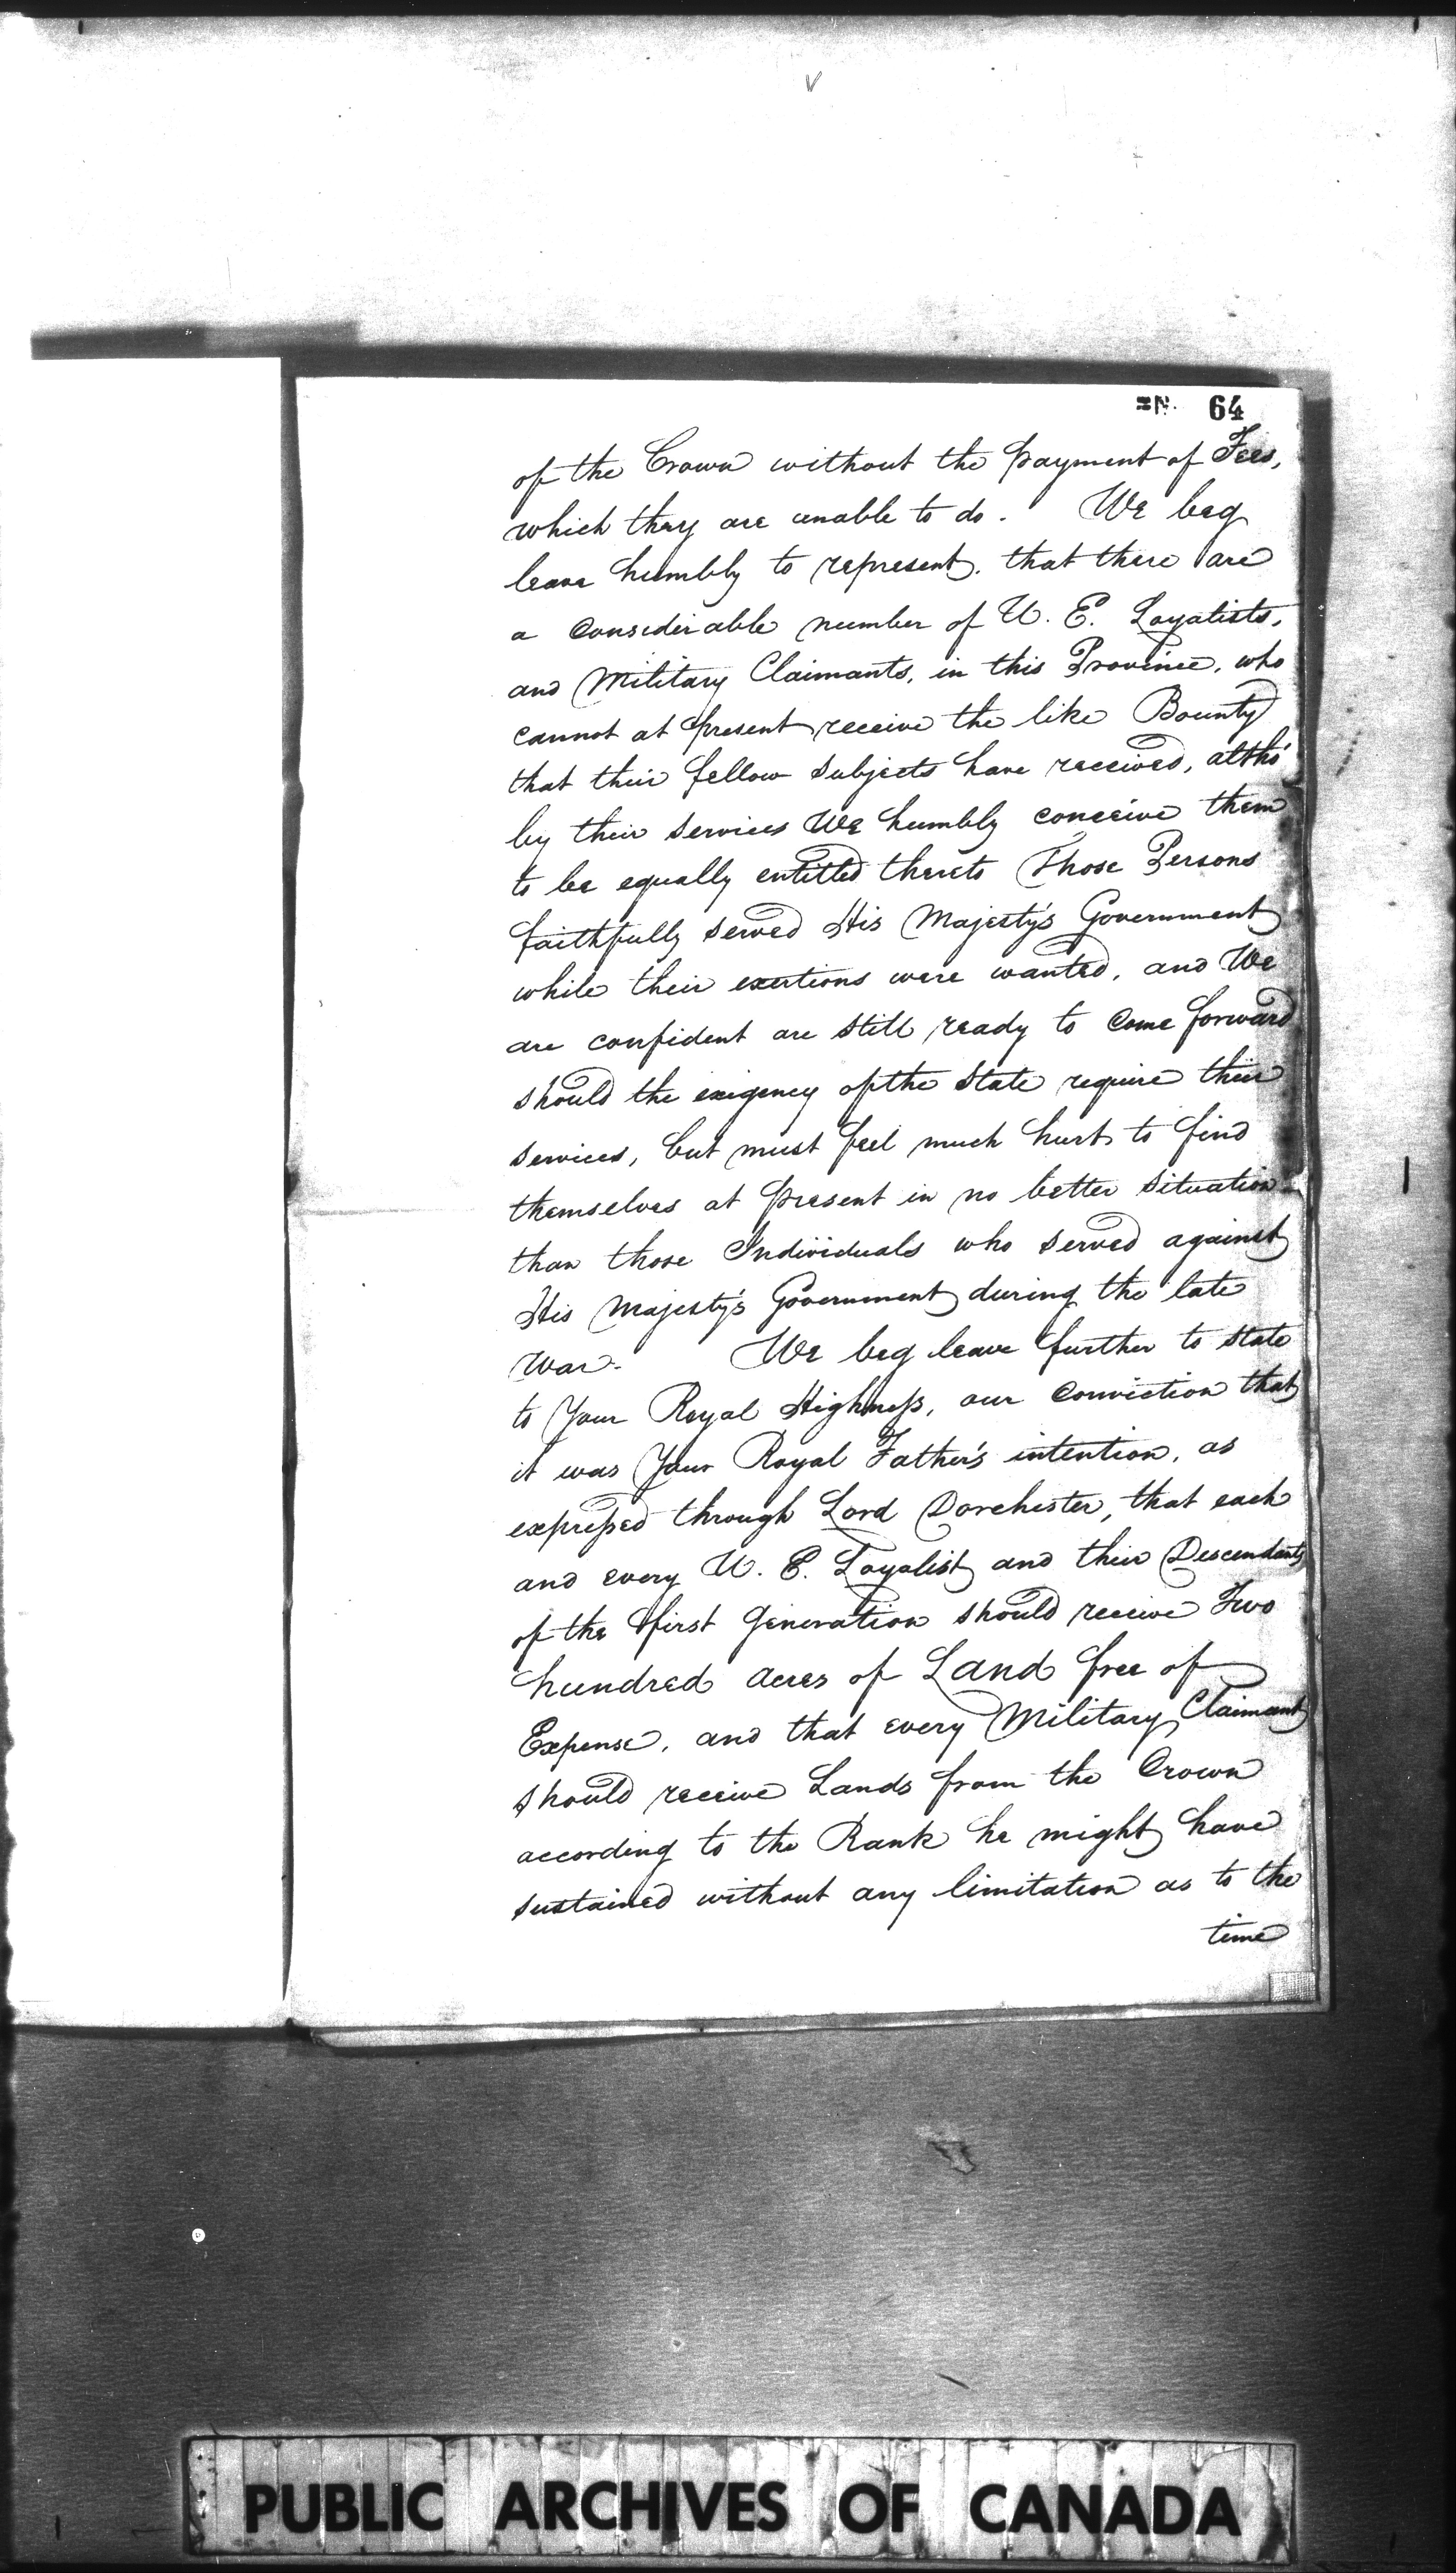 64
of the Crown without the payment of Fees,
which they are unable to do. We beg
leave humbly to represent, that there are
a considerable number of U. E. Loyalists,
and Military Claimants, in this Province, who
cannot at present receive the like Bounty
that their fellow subjects have received, altho'
by their services We humbly conceive them
to be equally entitled thereto Those Persons
faithfully served His Majesty's Government
while their exertions were wanted, and We
are confident are still ready to come forward
should the exigency of the State require their
services, but must feel much hurt to find
themselves at present in no better situation
than those Individuals who served against
His Majesty's Government during the late
War. We beg leave further to state
to Your Royal Highneſs, our conviction that
it was Your Royal Father's intention, as
expreſsed through Lord Dorchester, that each
and every U. E. Loyalist and their Descendants
of the first Generation should receive Two
hundred acres of Land free of
Expense, and that every Military Claimant
should receive Lands from the Crown
according to the Rank he might have
sustained without any limitation as to the
time
PUBLIC ARCHIVES OF CANADA